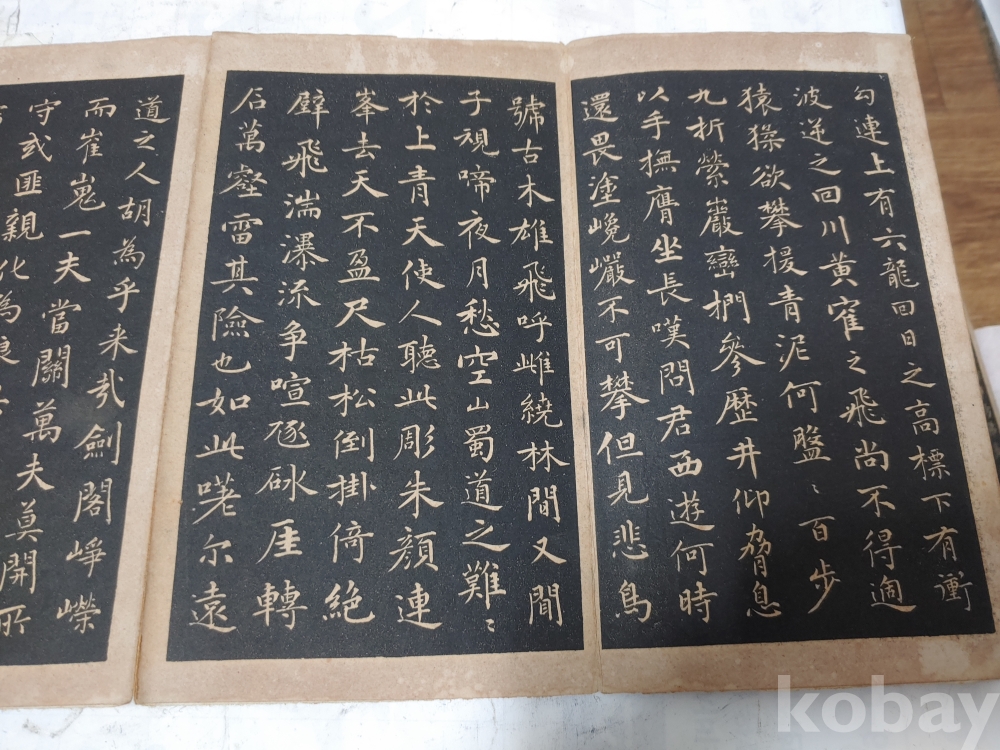 勾連上有六龍回日之高標下有衝
波逆之回川黃寉之飛尚不得過
猿猱欲攀援青泥何盤〻百步
九折縈巖巒捫參歷井仰脅息
以手撫膺坐長嘆問君西遊何時
還畏塗巉巖不可攀但見悲鳥
號古木雄飛呼雌繞林間又聞
子規啼夜月愁空山蜀道之難〻
於上青天使人聽此彫朱顏連
峯去天不盈尺枯松倒掛倚絕
壁飛湍瀑流爭喧豗砯厓轉
石萬壑雷其險也如此嗟尔遠
道之人胡為乎来哉劍閣崢嶸
而崔嵬一夫當關萬夫莫開所
守或匪親化為
kobay